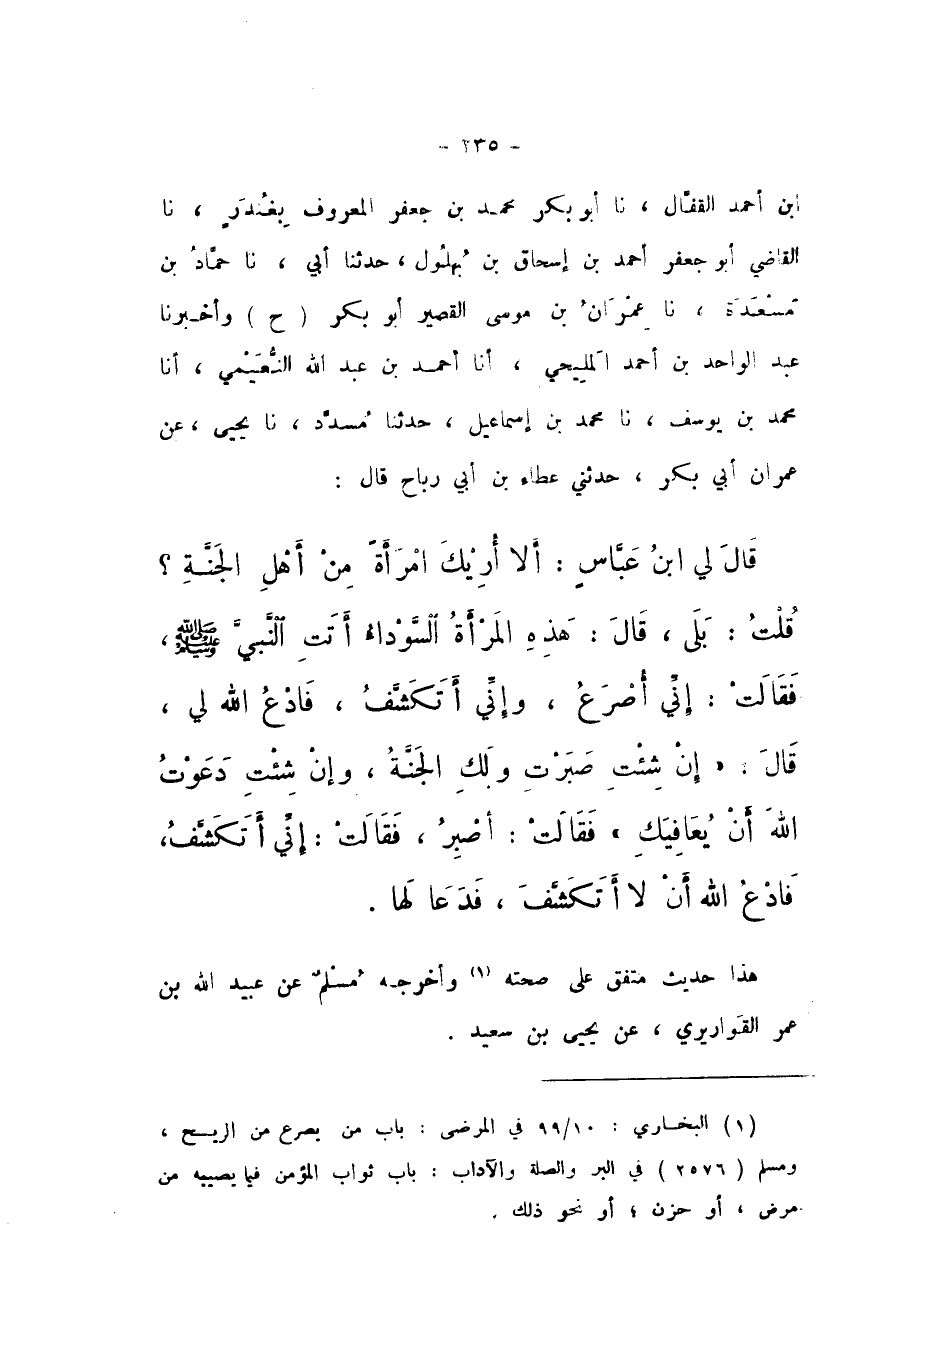 - ٢٣٥ -
ابن أحمد القفَّال ، نا أبو بكر محمد بن جعفر المعروف بِغُندَرٍ ، نا
القاضي أبو جعفر أحمد بن إسحاق بن بُهلُول ، حدثنا أبي ، نا حمَّادُ بن
مَسْعَدَة ، نا عِمْرَانُ بن موسى القصير أبو بكر ( ح ) وأخبرنا
عبد الواحد بن أحمد المَلِيحي ، أنا أحمد بن عبد الله النُّعَيْمي ، أنا
محمد بن يوسف ، نا محمد بن إسماعيل ، حدثنا مُسدَّد ، نا يحيى ، عن
عمران أبي بكر ، حدثني عطاء بن أبي رباح قال :
قَالَ لي ابنُ عَبَّاسٍ : أَلا أُرِيْكَ امْرَأَةً مِنْ أَهْلِ الجَنَّةِ ؟
قُلْتُ : بَلَى ، قَالَ : هَذِهِ المَرْأَةُ السَّوْدَاءُ أَتَتِ النَّبيَّ ﷺ ،
فَقَالَتْ : إنِّي أُصْرَعُ ، وإنِّي أَتَكَشَّفُ ، فَادْعُ الله لي ،
قَالَ : « إنْ شِئْتِ صَبَرْتِ ولَكِ الجَنَّةُ ، وإنْ شِئْتِ دَعَوْتُ
اللهَ أَنْ يُعَافِيَكِ » فَقَالَتْ : أصْبِرُ ، فَقَالَتْ : إنِّي أَتَكَشَّفُ ،
فَادْعُ الله أَنْ لا أَتَكَشَّفَ ، فَدَعَا لَها .
هذا حديث متفق على صحته (١) وأخرجه مُسْلمٌ عن عبيد الله بن
عمر القَواريري ، عن يحيى بن سعيد .
(١) البخاري : ٩٩/١٠ في المرضى : باب من يصرع من الريح ،
ومسلم ( ٢٥٧٦ ) في البر والصلة والآداب : باب ثواب المؤمن فيما يصيبه من
مرض ، أو حزن ؛ أو نحو ذلك .